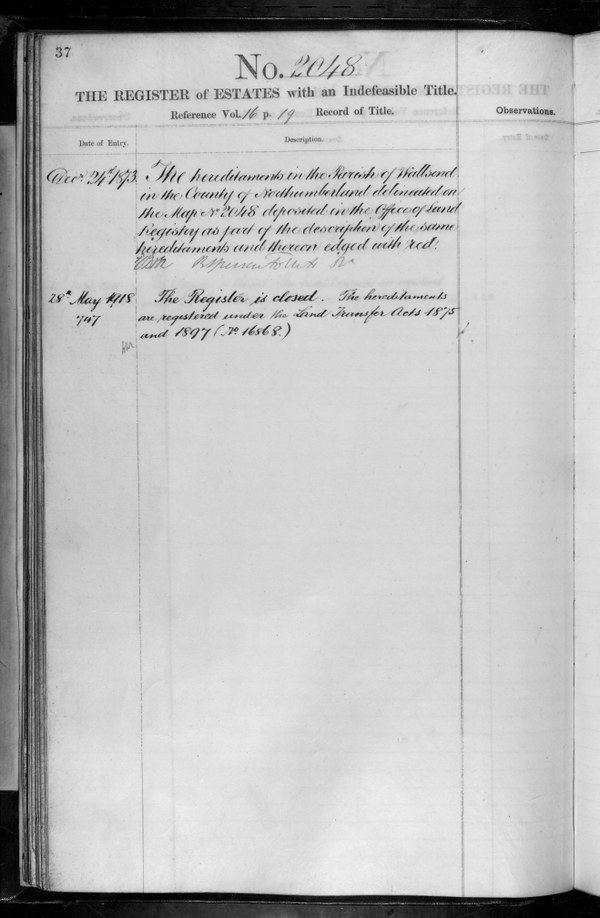 37
No. 2048
THE REGISTER of ESTATES with an Indefeasible Title.
Reference Vol. 16 p. 19 Record of Title.
Observations.
Date of Entry.
Description.
Decr. 24th 1873. The hereditaments in the Parish of Wallsend
in the County of Northumberland delineated on
the Map No 2048 deposited in the Office of Land
Registry as part of the description of the same
hereditaments and thereon edged with red.
28th May 1918 The Register is closed. The hereditaments
747 are registered under the Land Transfer Acts 1875
and 1897 (No. 16868.)